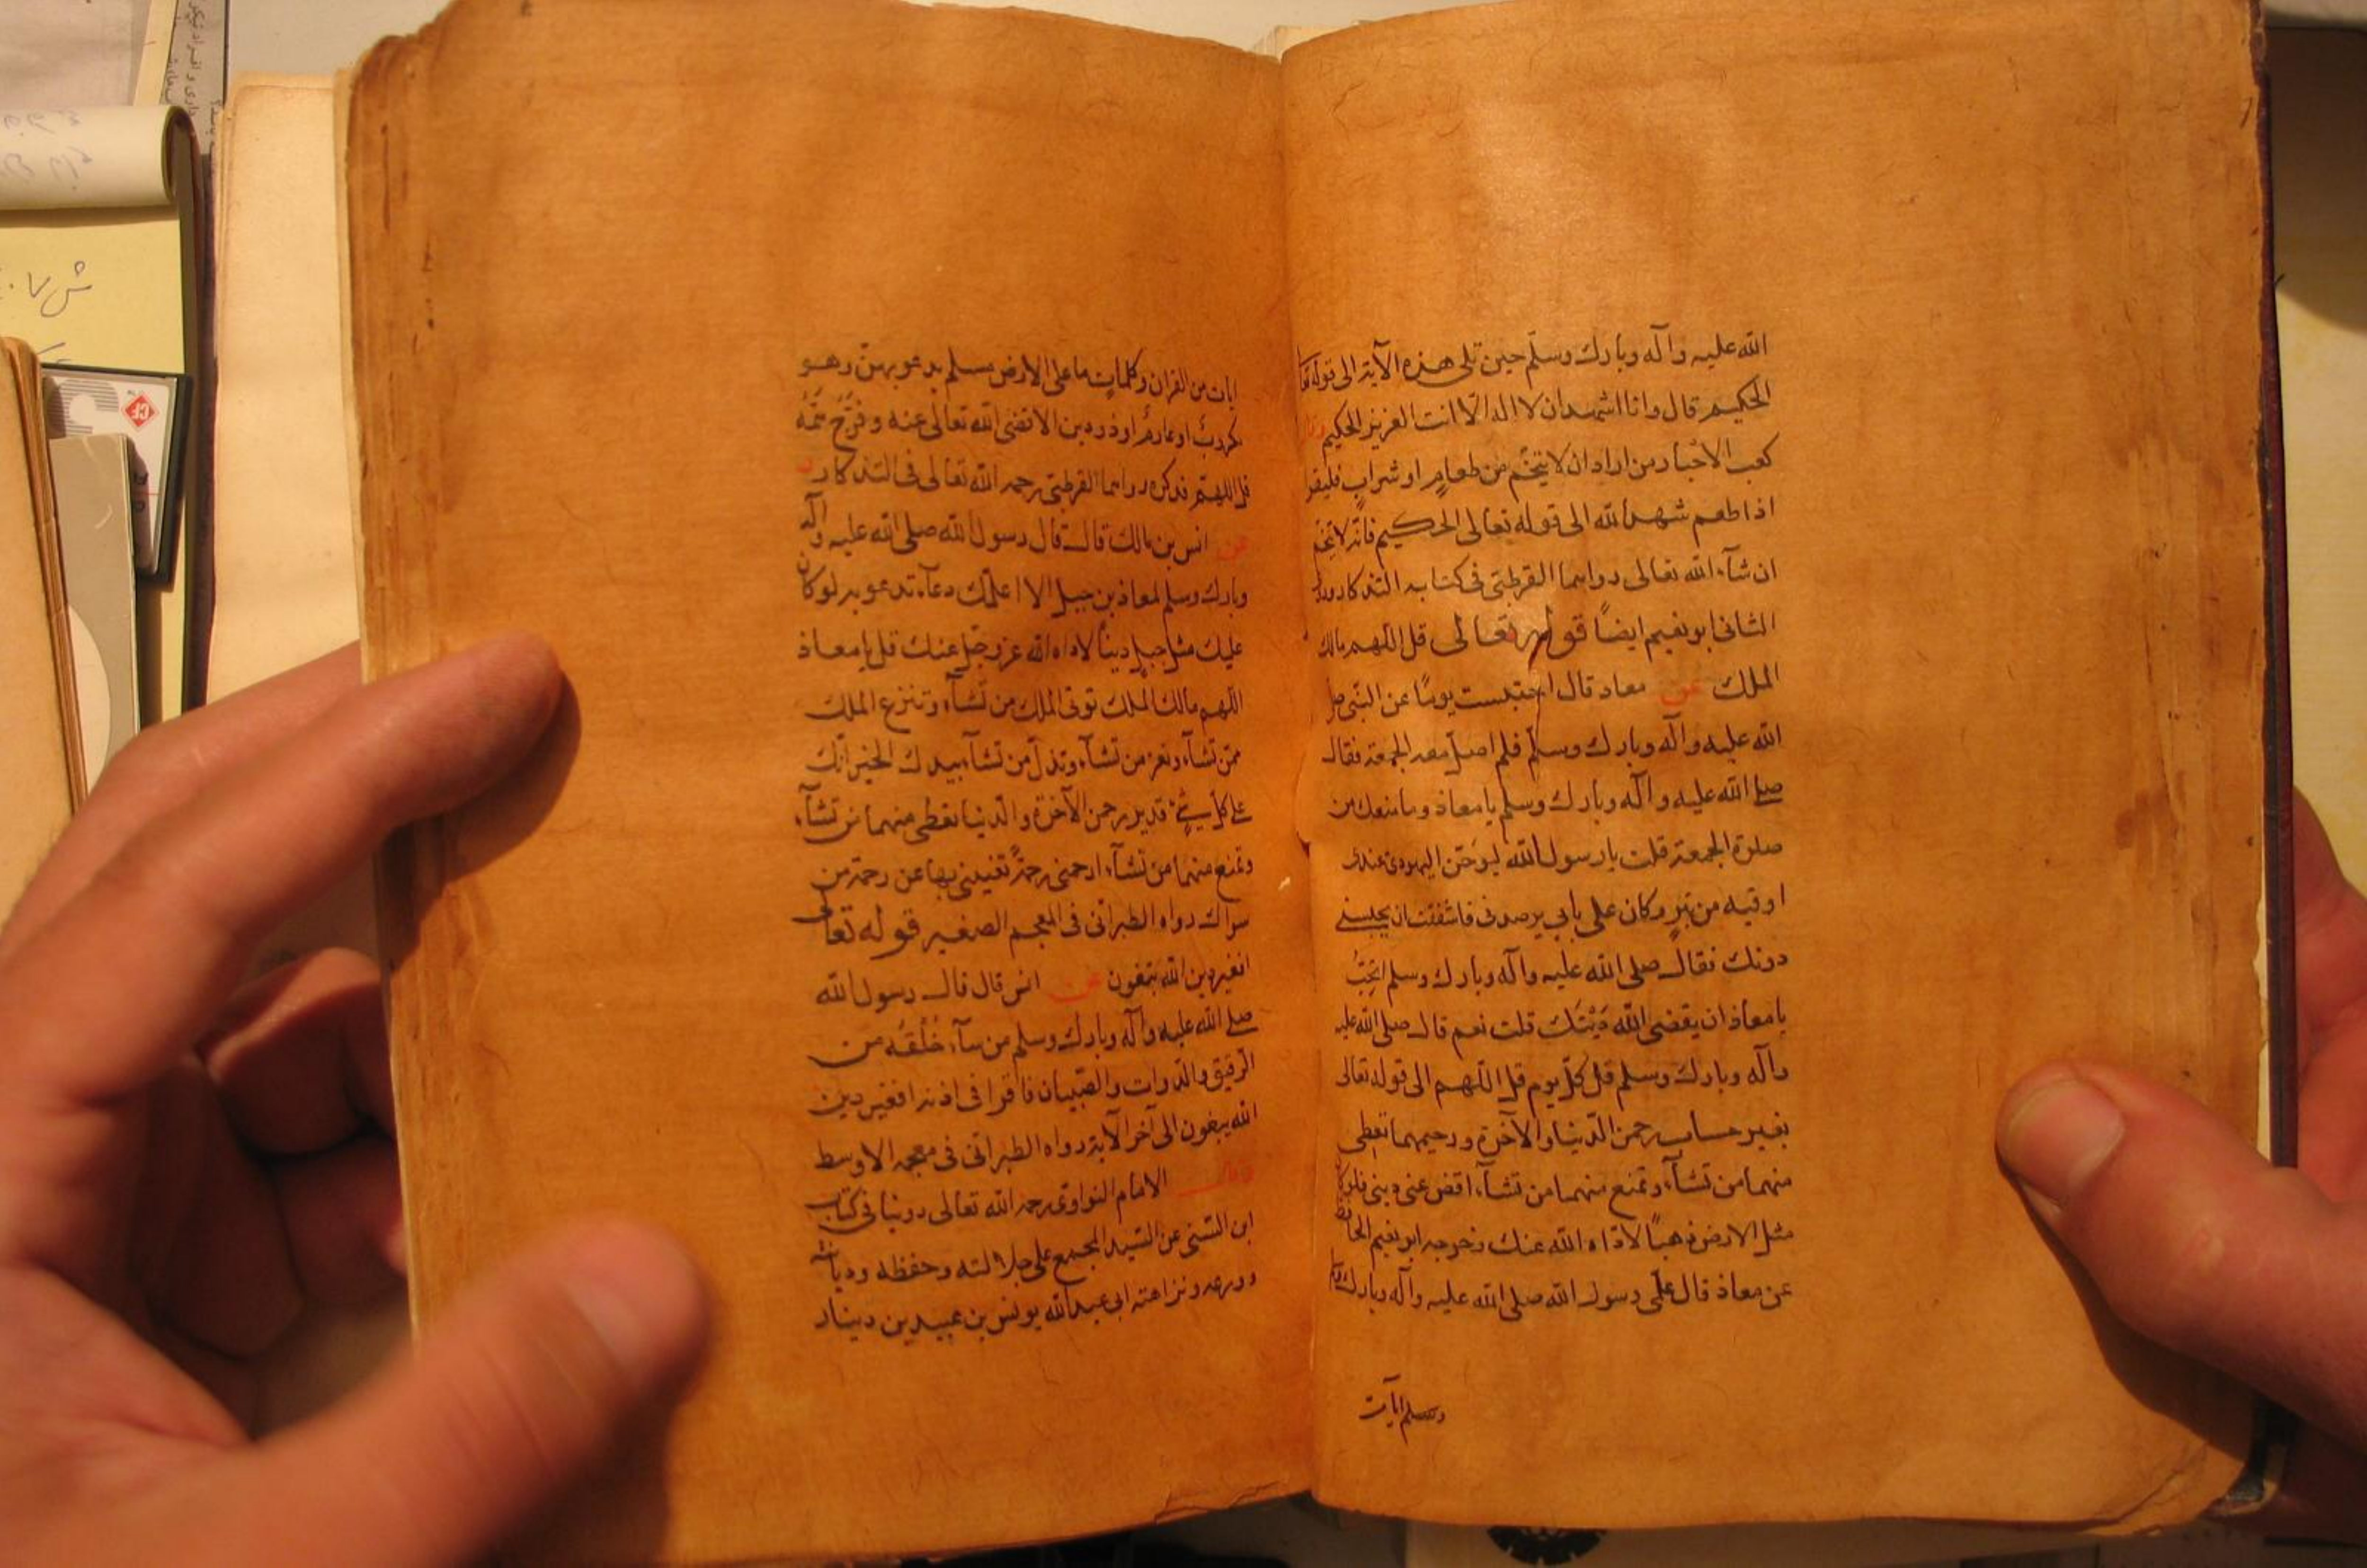 الله عليه وآله وبارك وسلّم حين تلى هذه الآية الى قوله تعا
الحكيم قال وانا اشهد ان لا اله الّا انت العزيز الحكيم وقال
كعب الاحبار من اراد ان لا يتخّم من طعامٍ او شرابٍ فليقرا
اذا طعم شهد الله الى قوله تعالى الحكيم فانّه لا يتخم
ان شآء الله تعالى رواهما القرطبّى فى كتابه التذكار وروى
الثانى ابو نعيم ايضاً قوله تعالى قل اللهم مالك
الملك عن معاذ قال احتبست يوماً عن النبّى صلى
الله عليه وآله وبارك وسلّم فلم اصلّ معه الجمعة فقال
صلى الله عليه وآله وبارك وسلم يا معاذ وما منعك من
صلوة الجمعة قلت يا رسول الله ليوحنّ اليهودى عندى
اوقيه من تبرٍ وكان على بابى يرصدنى فاشفقت ان يحبسنى
دونك فقال صلى الله عليه وآله وبارك وسلم اتحبّ
يا معاذ ان يقضى الله دَيْنَك قلت نعم قال صلى الله عليه
وآله وبارك وسلم قل كلّ يوم قل اللّهم الى قوله تعالى
بغير حساب رحمن الدّنيا والآخرة ورحيمهما تعطى
منهما من تشآء وتمنع منهما من تشآء اقض عنى دينى فلو كان
مثل الارض ذهباً لادّاه الله عنك وخرجه ابو نعيم الحافظ
عن معاذ قال علّمنى رسول الله صلى الله عليه وآله وبارك وسلم
وسلم ايآت
ايات من القرآن وكلماتٍ ما على الارض مسلم يدعو بهنّ وهو
مكروبٌ او غارمٌ او ذو دين الا قضى الله تعالى عنه وفَرَّجَ هَمَّهُ
قل اللهمّ فذكره رواهما القرطبّى رحمه الله تعالى فى التذكار و
عن انس بن مالك قال قال رسول الله صلى الله عليه وآله
وبارك وسلم لمعاذ بن جبل الا اعلّمك دعآء تدعو به لو كان
عليك مثل جبل ديناً لاداه الله عز وجّل عنك قل يا معاذ
اللهم مالك الملك توتى الملك من تشآء وتنزع الملك
ممّن تشآء وتعز من تشآء وتذلّ من تشآء بيدك الخير انّك
على كلّ شىءٍ قدير رحمن الآخرة والدّنيا تعطى منهما من تشآء
وتمنع منهما من تشآء ارحمنى رحمةً تغنينى بها عن رحمة من
سواك رواه الطبرانّى فى المعجم الصغير قوله تعالى
افغير دين الله يبغون عن انس قال قال رسول الله
صلى الله عليه وآله وبارك وسلم من سآء خُلُقُه من
الرقيق والدّواب والصّبيان فاقرا فى اذنه افغير دين
الله يبغون الى آخر الآية رواه الطبرانّى فى معجمه الاوسط
وقال الامام النواوى رحمه الله تعالى روينا فى كتاب
ابن السّنى عن السّيد المجمع على جلالته وحفظه وديانته
وورعه ونزاهته ابى عبد الله يونس بن عبيد بن دينار